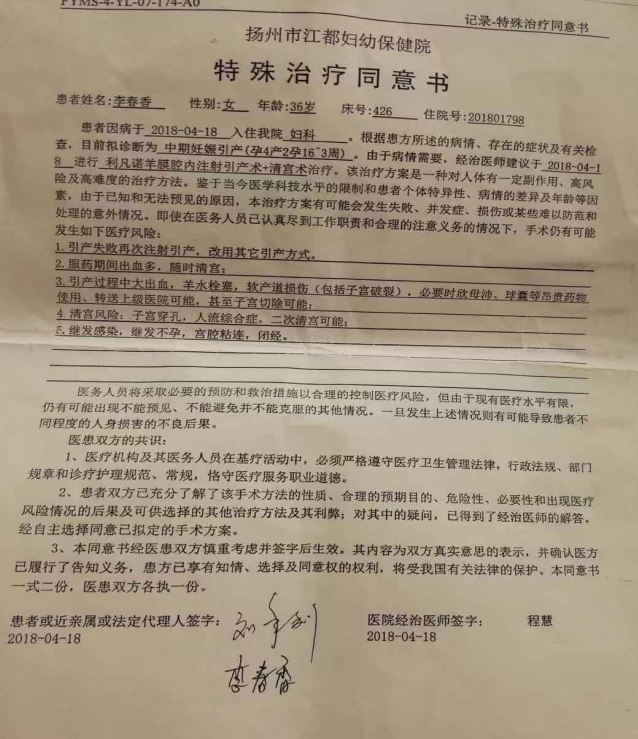 FYMS-4-YL-07-174-A0
记录-特殊治疗同意书
扬州市江都妇幼保健院
特殊治疗同意书
患者姓名:李春香 性别:女 年龄:36岁 床号:426 住院号:201801798
患者因病于 2018-04-18 入住我院 妇科 。根据患方所述的病情、存在的症状及有关检
查，目前拟诊断为 中期妊娠引产(孕4产2孕16^3周)。由于病情需要，经治医师建议于 2018-04-1
8 进行 利凡诺羊膜腔内注射引产术+清宫术治疗。该治疗方案是一种对人体有一定副作用、高风
险及高难度的治疗方法。鉴于当今医学科技水平的限制和患者个体特异性、病情的差异及年龄等因
素，由于已知和无法预见的原因，本治疗方案有可能会发生失败、并发症、损伤或某些难以防范和
处理的意外情况。即使在医务人员已认真尽到工作职责和合理的注意义务的情况下，手术仍有可能
发生如下医疗风险:
1.引产失败再次注射引产，改用其它引产方式。
2.服药期间出血多，随时清宫;
3.引产过程中大出血，羊水栓塞，软产道损伤（包括子宫破裂），必要时欣母沛、球囊等昂贵药物
使用、转送上级医院可能，甚至子宫切除可能;
4.清宫风险: 子宫穿孔，人流综合症，二次清宫可能;
5.继发感染，继发不孕，宫腔粘连，闭经。
医务人员将采取必要的预防和救治措施以合理的控制医疗风险，但由于现有医疗水平有限，
仍有可能出现不能预见、不能避免并不能克服的其他情况。一旦发生上述情况则有可能导致患者不
同程度的人身损害的不良后果。
医患双方的共识:
1、医疗机构及其医务人员在基疗活动中，必须严格遵守医疗卫生管理法律，行政法规、部门
规章和诊疗护理规范、常规，恪守医疗服务职业道德。
2、患者双方已充分了解了该手术方法的性质、合理的预期目的、危险性、必要性和出现医疗
风险情况的后果及可供选择的其他治疗方法及其利弊；对其中的疑问，已得到了经治医师的解答。
经自主选择同意已拟定的手术方案。
3、本同意书经医患双方慎重考虑并签字后生效。其内容为双方真实意思的表示，并确认医方
已履行了告知义务，患方已享有知情、选择及同意权的权利，将受我国有关法律的保护。本同意书
一式二份，医患双方各执一份。
患者或近亲属或法定代理人签字: 医院经治医师签字: 程慧
2018-04-18 2018-04-18
李春香